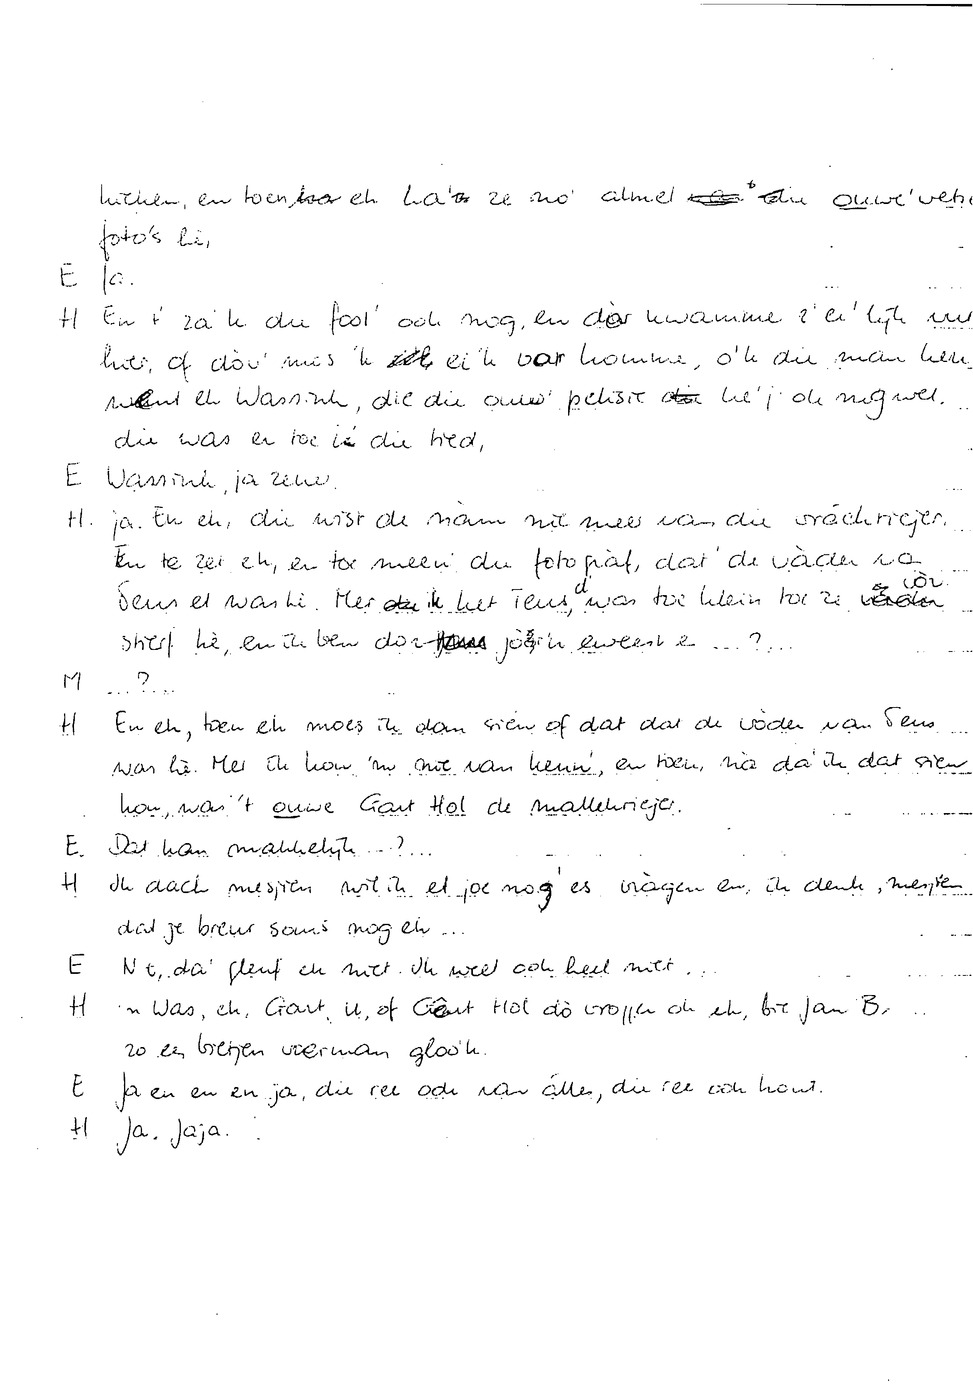 kieken, en toen eh ha'n ze no' almel die ouwe
foto's hè,
E Ja.
H En t' za'k die fool' ook nog, en dòr kwamme z' ei'lijk
hier, of dòv' mos 'k ei'k vòr komme, o'k die man
eh Wassink, die die ouw' pelisie he'j ok nog wel.
die was er toe in die tied,
E Wassink, ja zeker.
H. ja. En eh, die wist de nàam nie meer van die vràchriejer.
En te zei eh, en toe meen' die fotogràf, dat' de vàder va
Teus et was hè. Mer ik het Teus, d' was toe klein toe ze vòr
stierf hè, en ik ben dor jòòrn eweest e ...?...
M ...?...
H En eh, toen eh moes ik dan sien of dat dat de vòder van Teus
was hè. Mer ik kon 'm nie van kenn', en toen, nà da'ik dat sien
kon, was 't ouwe Gart Hol de mallekriejer.
E. Dat kan makkelijk ...?...
H Ik dach mesjien wil ik et joe nog 'es vràgen en, ik denk, mesjien
dat je breur soms nog eh ...
E Nee, da' gleuf ek niet. Ik weet ook heel niet ...
H 'n Was, eh, Gart, of Gart Hol dò vrogger ok eh, bie Jan B. ..
zo en bietjen voerman gloo'k.
E Ja en en en ja, die ree ook van àlles, die ree ook hout.
H Ja. Jaja.